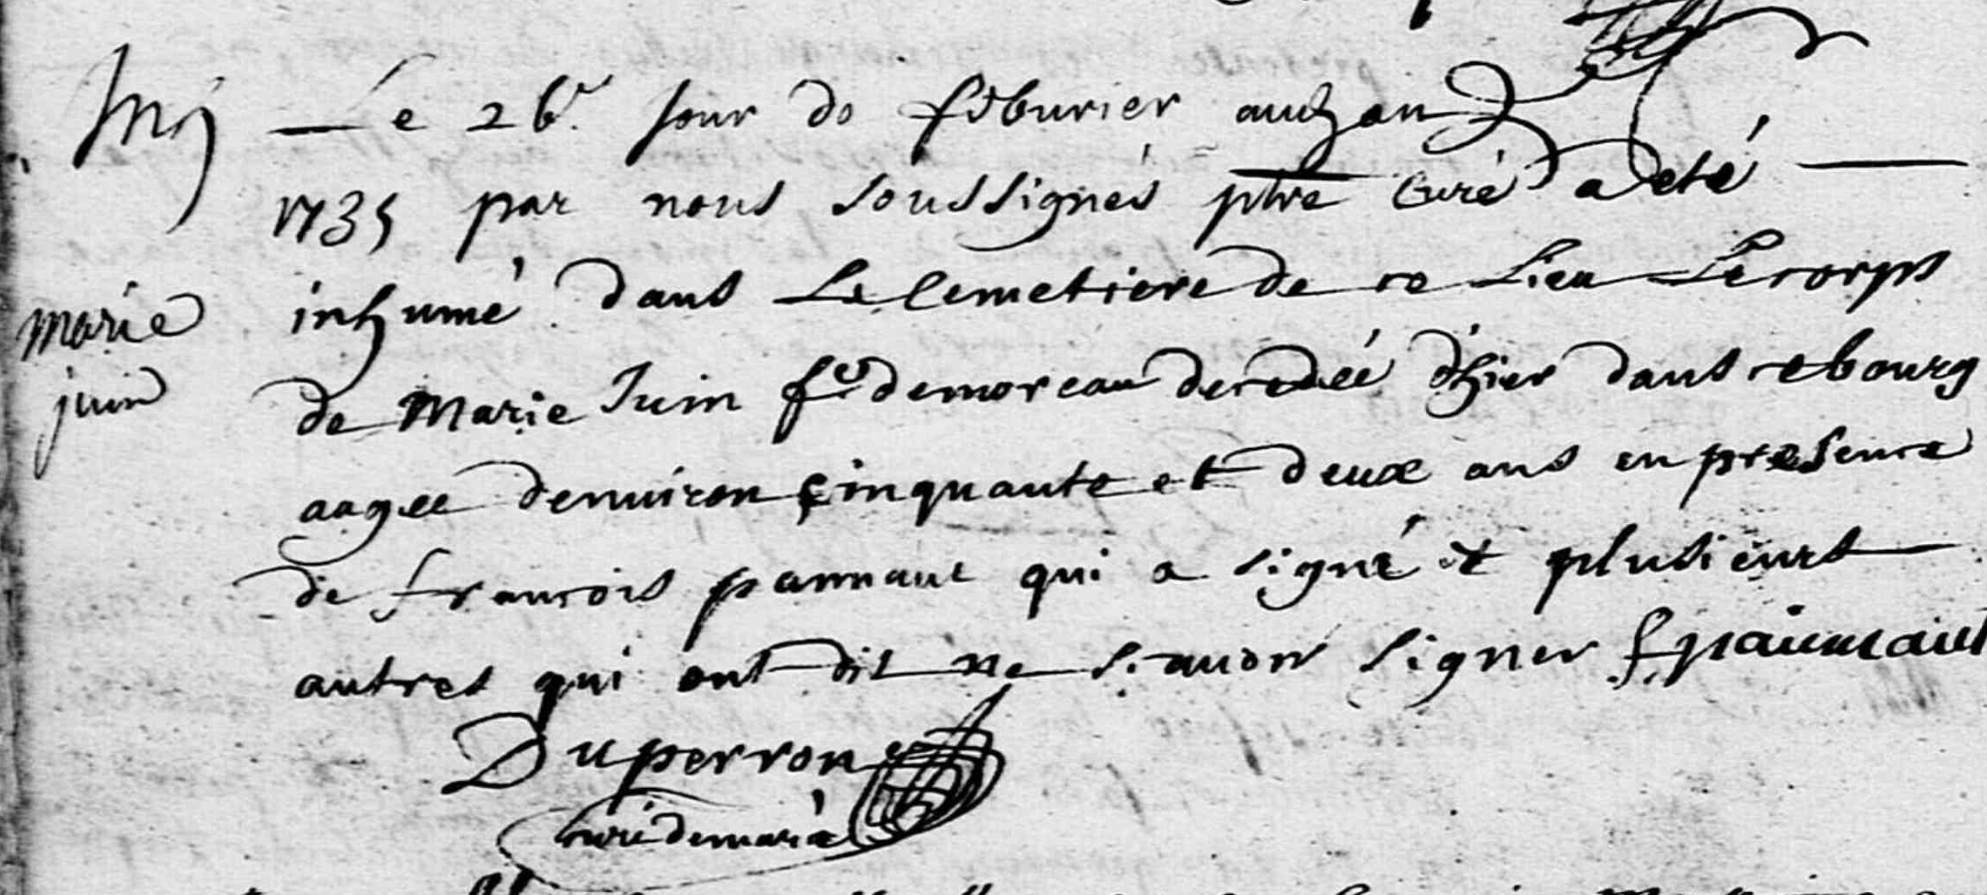 Le 26e jour de feburier audt an
1735 par nous soussignés ptre curé a eté
marie
juin
inhumé dans Le Cemetiere de ce Lieu Le corps
de Marie Juin fe de moreau decedeé d'hier dans ce bourg
aagee denuiron cinquante et deux ans en presence
de francois pannaut qui a signé et plusieurs
autres qui ont dit ne scauoir signer
Duperron
curé de